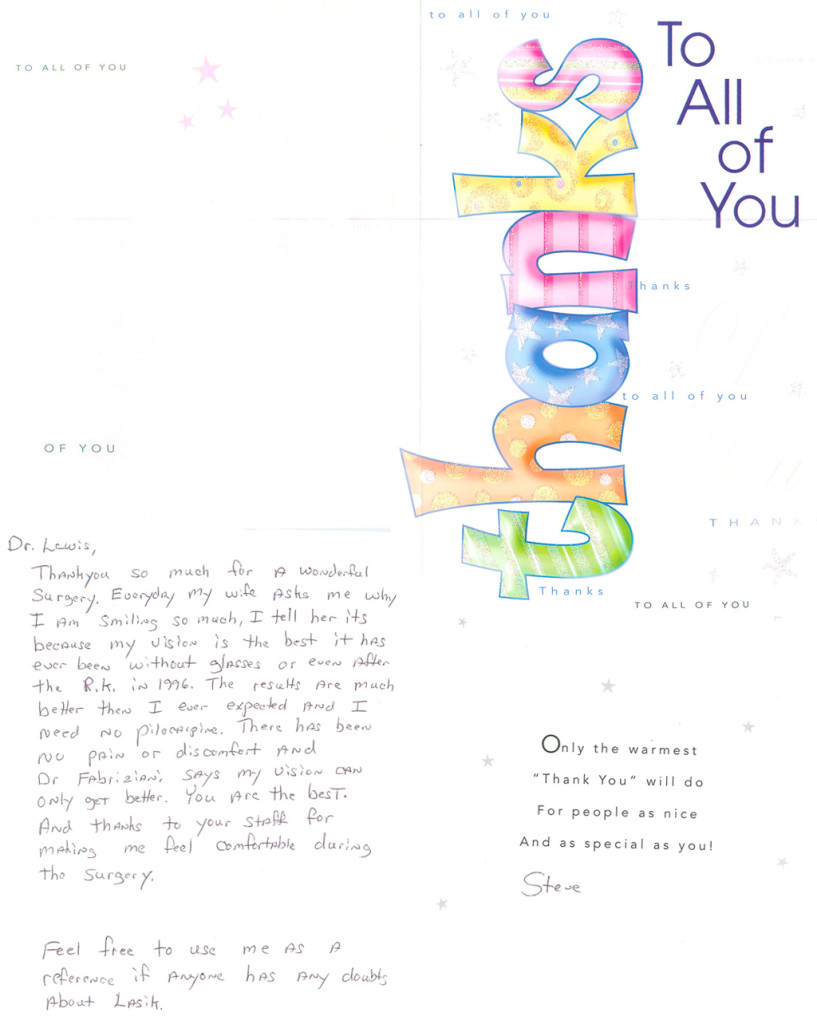 to all of you
To
All
of
You
TO ALL OF YOU
thanks
Thanks
to all of you
OF YOU
THANK
Thanks
TO ALL OF YOU
Dr. Lewis,
Thankyou so much for a wonderful
Surgery. Everyday my wife asks me why
I am smiling so much, I tell her its
because my vision is the best it has
ever been without glasses or even after
the R.K. in 1996. The results are much
better then I ever expected and I
need no pilocarpine. There has been
no pain or discomfort and
Dr Fabriziani, says my vision can
only get better. You are the best.
And thanks to your staff for
making me feel comfortable during
the surgery.
Feel free to use me as a
reference if anyone has any doubts
about Lasik.
Only the warmest
"Thank You" will do
For people as nice
And as special as you!
Steve